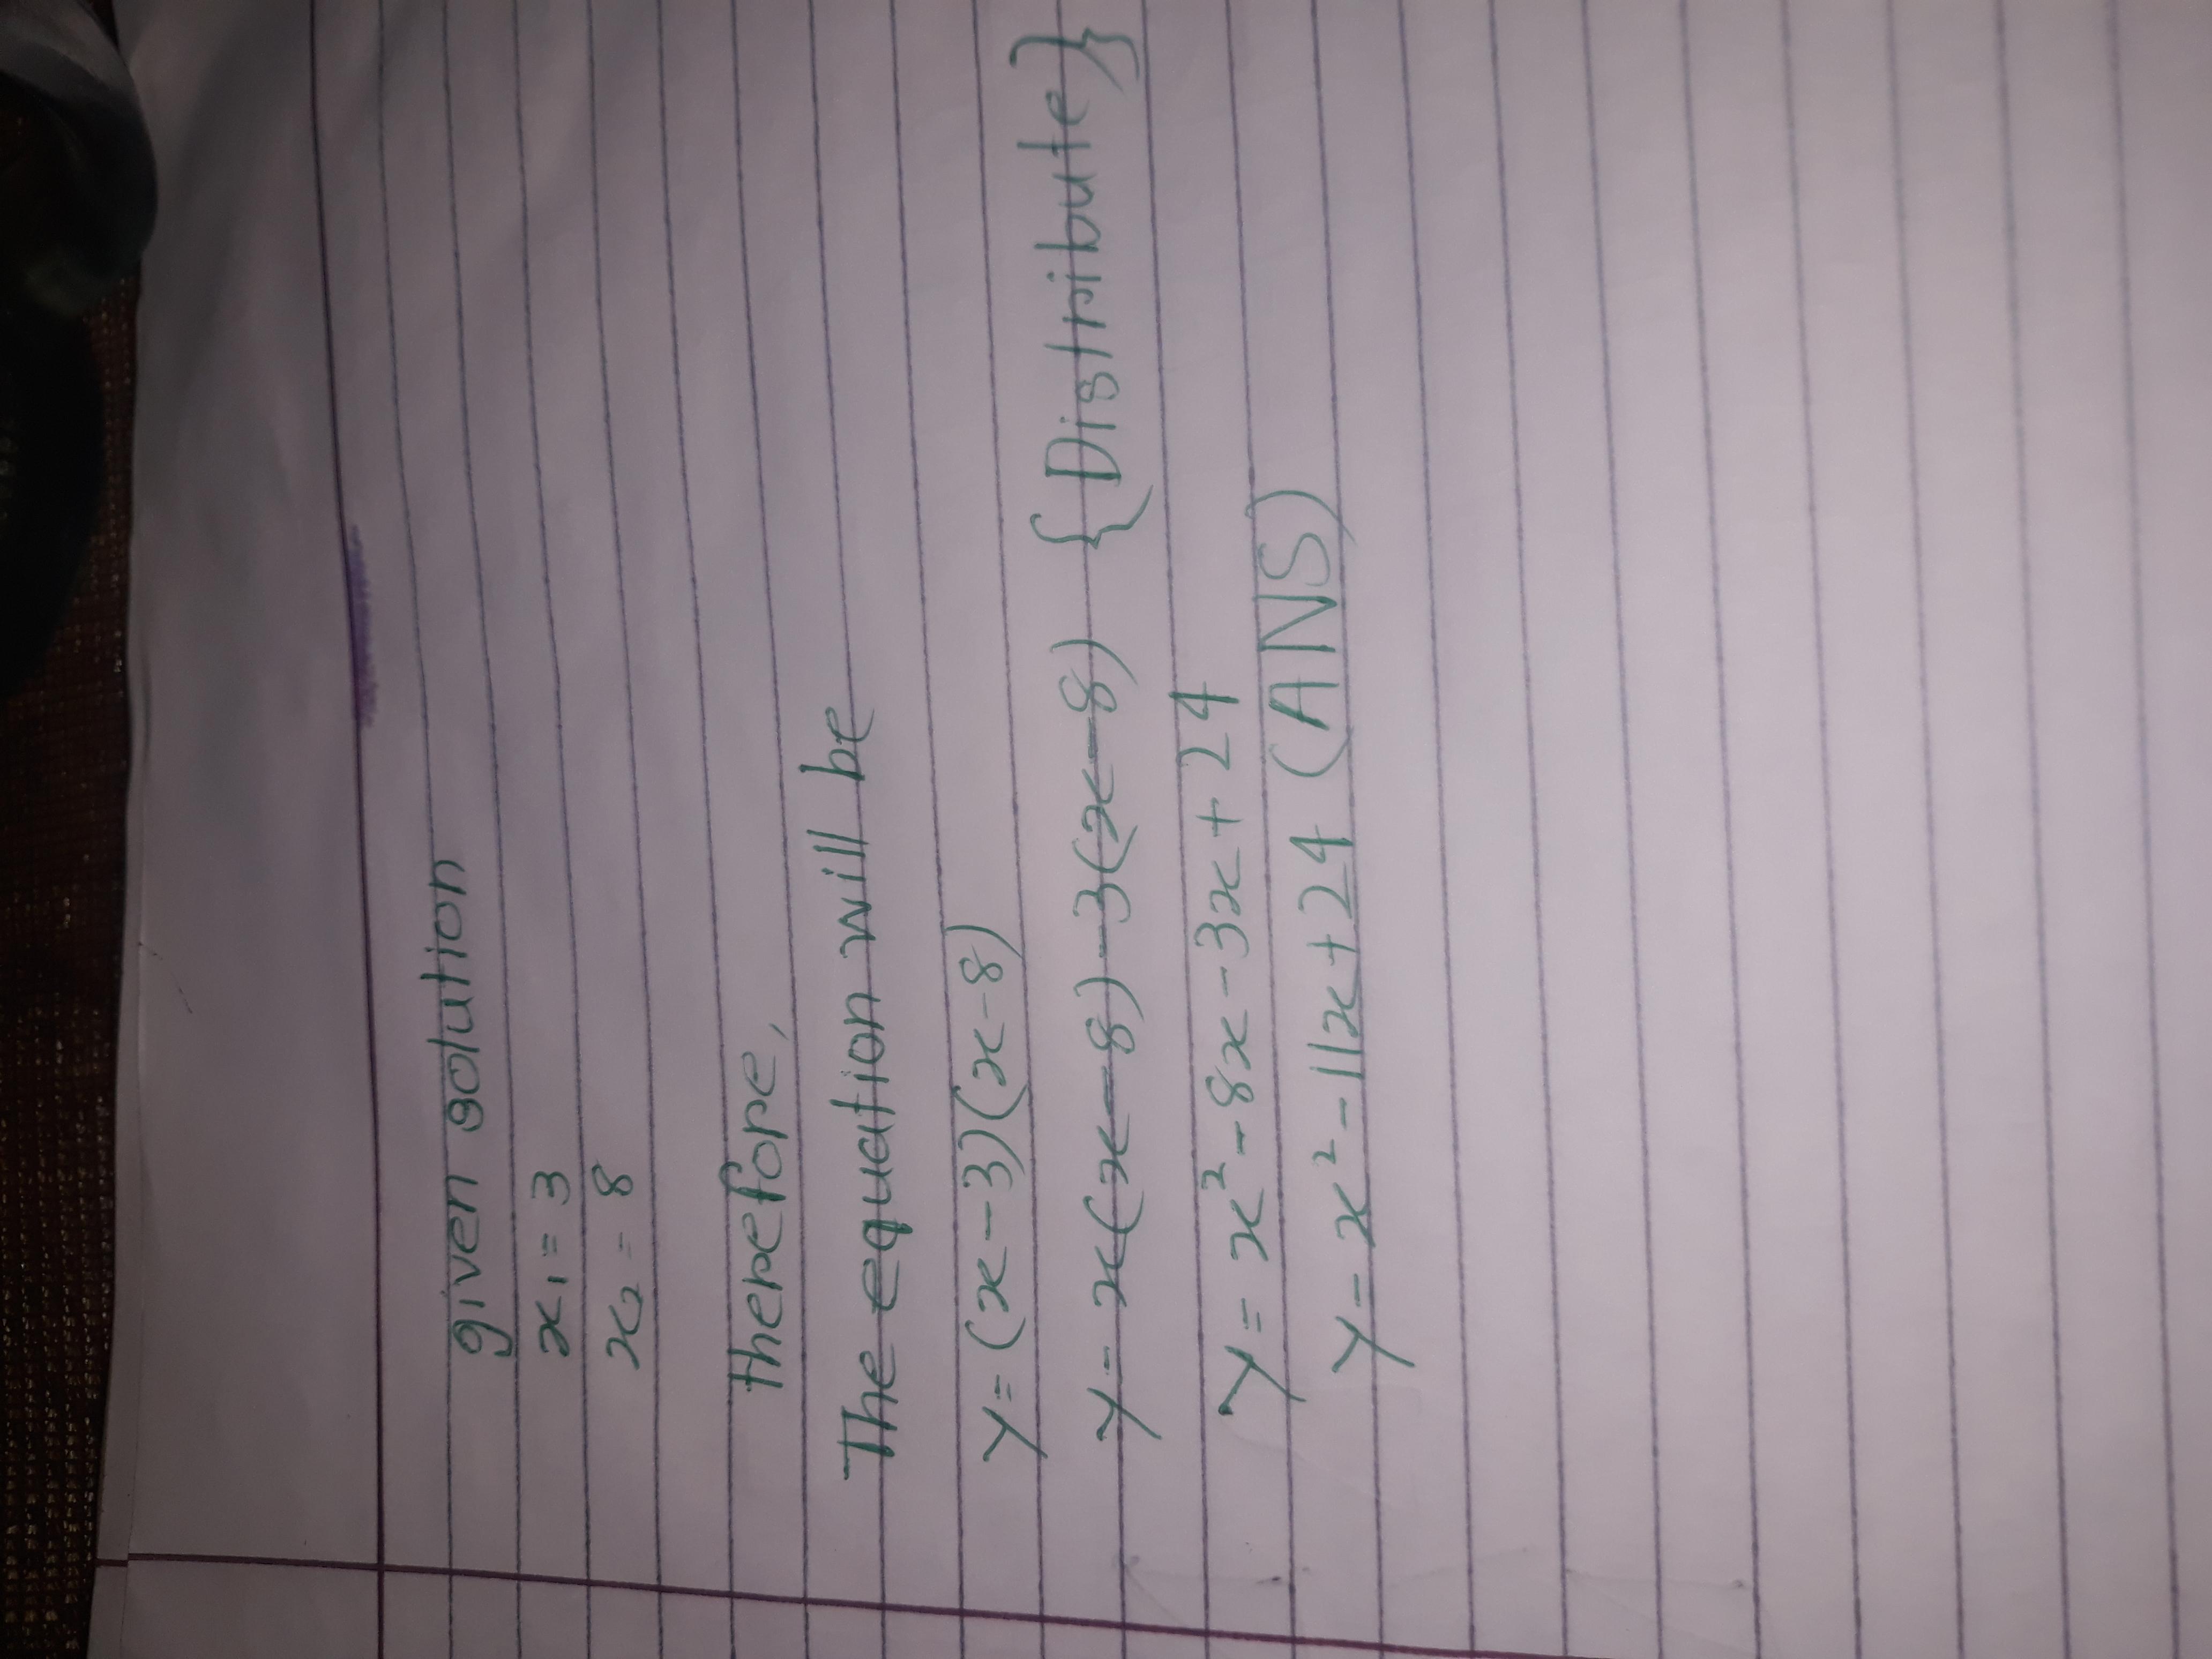 given solution
x₁ = 3
x₂ = 8
therefore,
The equation will be
y = (x-3)(x-8)
y = x(x-8)-3(x-8) {Distribute}
y = x² - 8x - 3x + 24
y = x² - 11x + 24 (ANS)